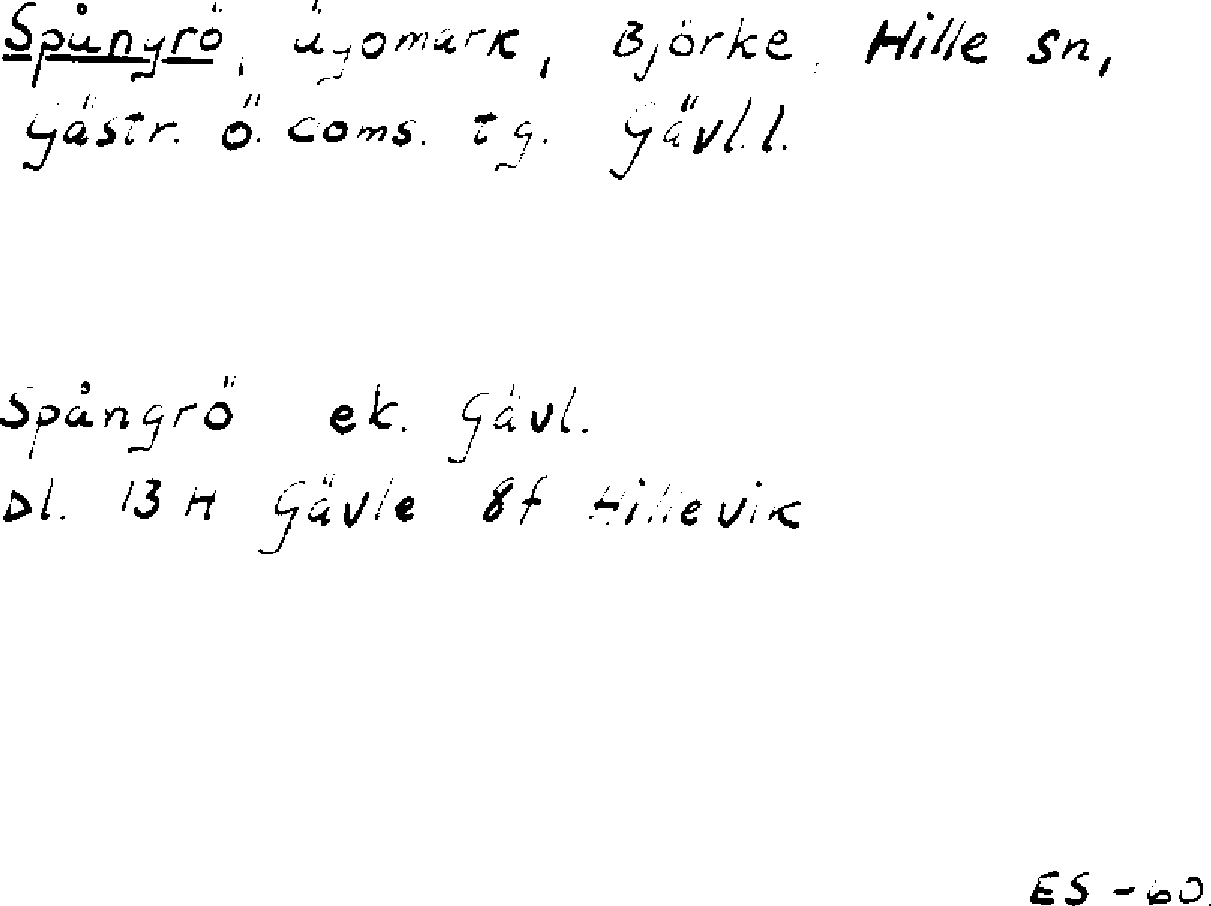 Spångrö, ägomark, Björke, Hille sn,
Gästr. ö. doms. tg. Gävl. l.
Spångrö ek. Gävl.
Dl. 13 H Gävle 8f Hillevik
ES -60.